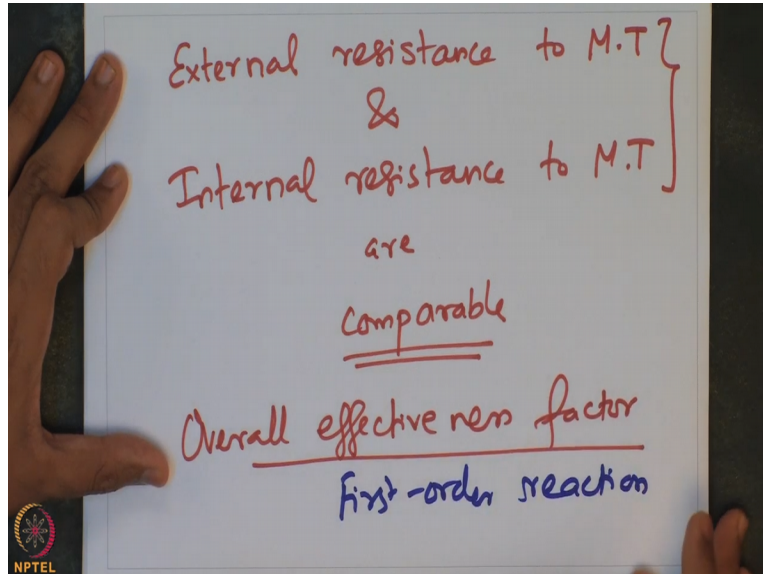 External resistance to M.T
&
Internal resistance to M.T
are
comparable
Overall effectiveness factor
First-order reaction
NPTEL